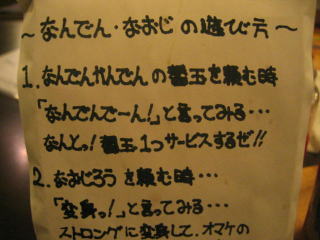 ～なんでん・なおじの遊び方～
1. なんでんかんでんの替玉を頼む時
「なんでんでーん!」と言ってみる…
なんとっ! 替玉1つサービスするぜ!!
2. なおじろうを頼む時…
「変身っ!」と言ってみる…
ストロングに変身して、オマケの